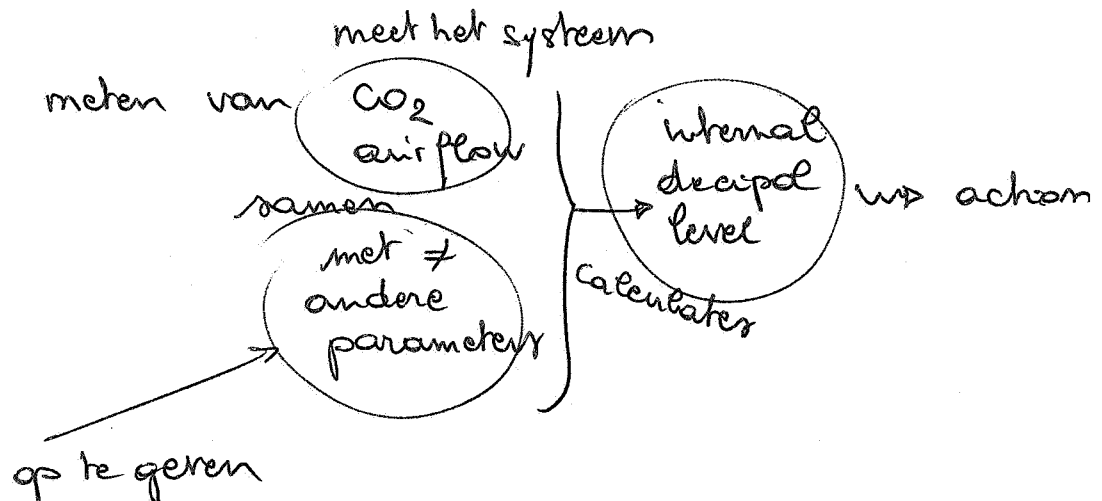 meet het systeem
meten van
CO2
airflow
samen
met ≠
andere
parameters
op te geven
calculates
internal
decipol
level
⇒ action